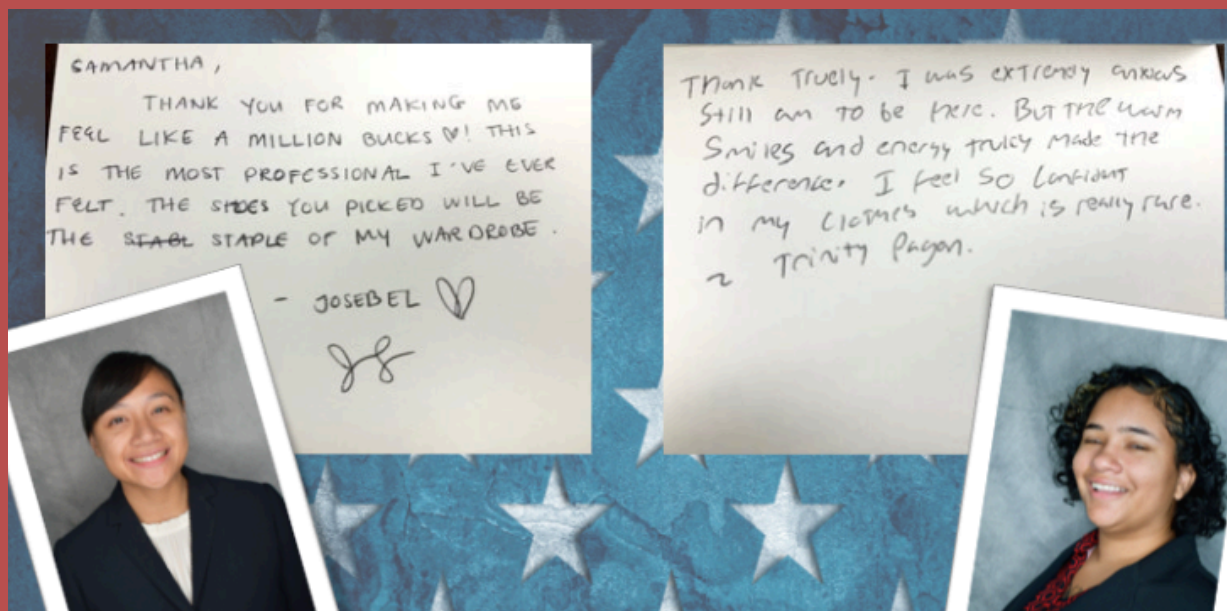 SAMANTHA,
THANK YOU FOR MAKING ME
FEEL LIKE A MILLION BUCKS ♡! THIS
IS THE MOST PROFESSIONAL I'VE EVER
FELT. THE SHOES YOU PICKED WILL BE
THE STABL STAPLE OF MY WARDROBE.
- JOSEBEL ♡
Thank Truely. I was extremely anxious
Still am to be here. But the warm
Smiles and energy truley made the
difference. I feel so confident
in my clothes which is really rare.
~ Trinity Pagan.